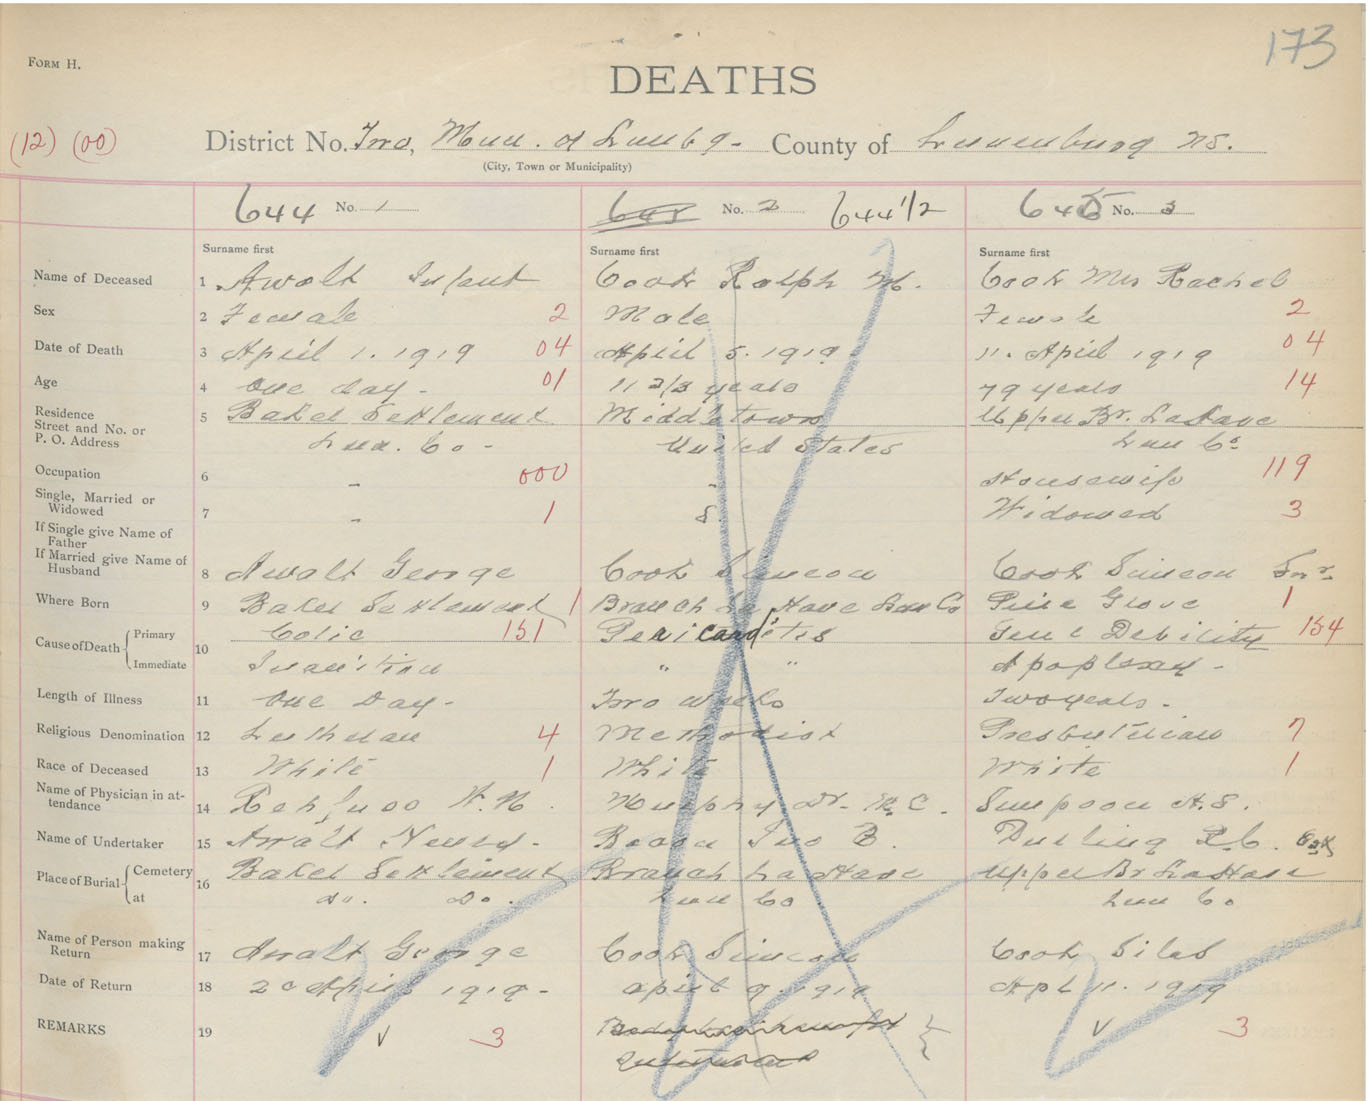 173
FORM H.
DEATHS
(12) (00) District No. Two, Mun. of Lunbg. County of Lunenburg NS.
(City, Town or Municipality)
644 No. 1 645 No. 2 644 1/2 645 No. 3
Surname first Surname first Surname first
Name of Deceased 1 Awalt Infant Cook Ralph M. Cook Mrs Rachel
Sex 2 Female 2 Male Female 2
Date of Death 3 April 1. 1919 04 April 5. 1919 11. April 1919 04
Age 4 One day - 01 11 2/3 years 79 years 14
Residence Street and No. or P. O. Address 5 Baker Settlement Middletown Upper Br. LaHave
Lun. Co - United States Lun Co
Occupation 6 - 000 - Housewife 119
Single, Married or Widowed 7 - 1 S. Widowed 3
If Single give Name of Father
If Married give Name of Husband 8 Awalt George Cook Simeon Cook Simeon Snr.
Where Born 9 Baker Settlement 1 Branch La Have Lun Co Pine Grove 1
Cause of Death Primary 10 Colic 151 Pericarditis Debility 154
Immediate Inanition " " Apoplexy -
Length of Illness 11 One Day - Two weeks Two years.
Religious Denomination 12 Lutheran 4 Methodist Presbuterian 7
Race of Deceased 13 White 1 White White 1
Name of Physician in attendance 14 Murphy Dr. C. Simpson A. S.
Name of Undertaker 15 Awalt - Jno B. Durling
Place of Burial Cemetery 16 Baker Settlement Branch La Have Upper Br LaHave
at do. Do. Lun Co Lun Co
Name of Person making Return 17 Awalt George Cook Simeon Cook Silas
Date of Return 18 April 1919 - April 9. 1919 Apl 11. 1919
REMARKS 19 3 3